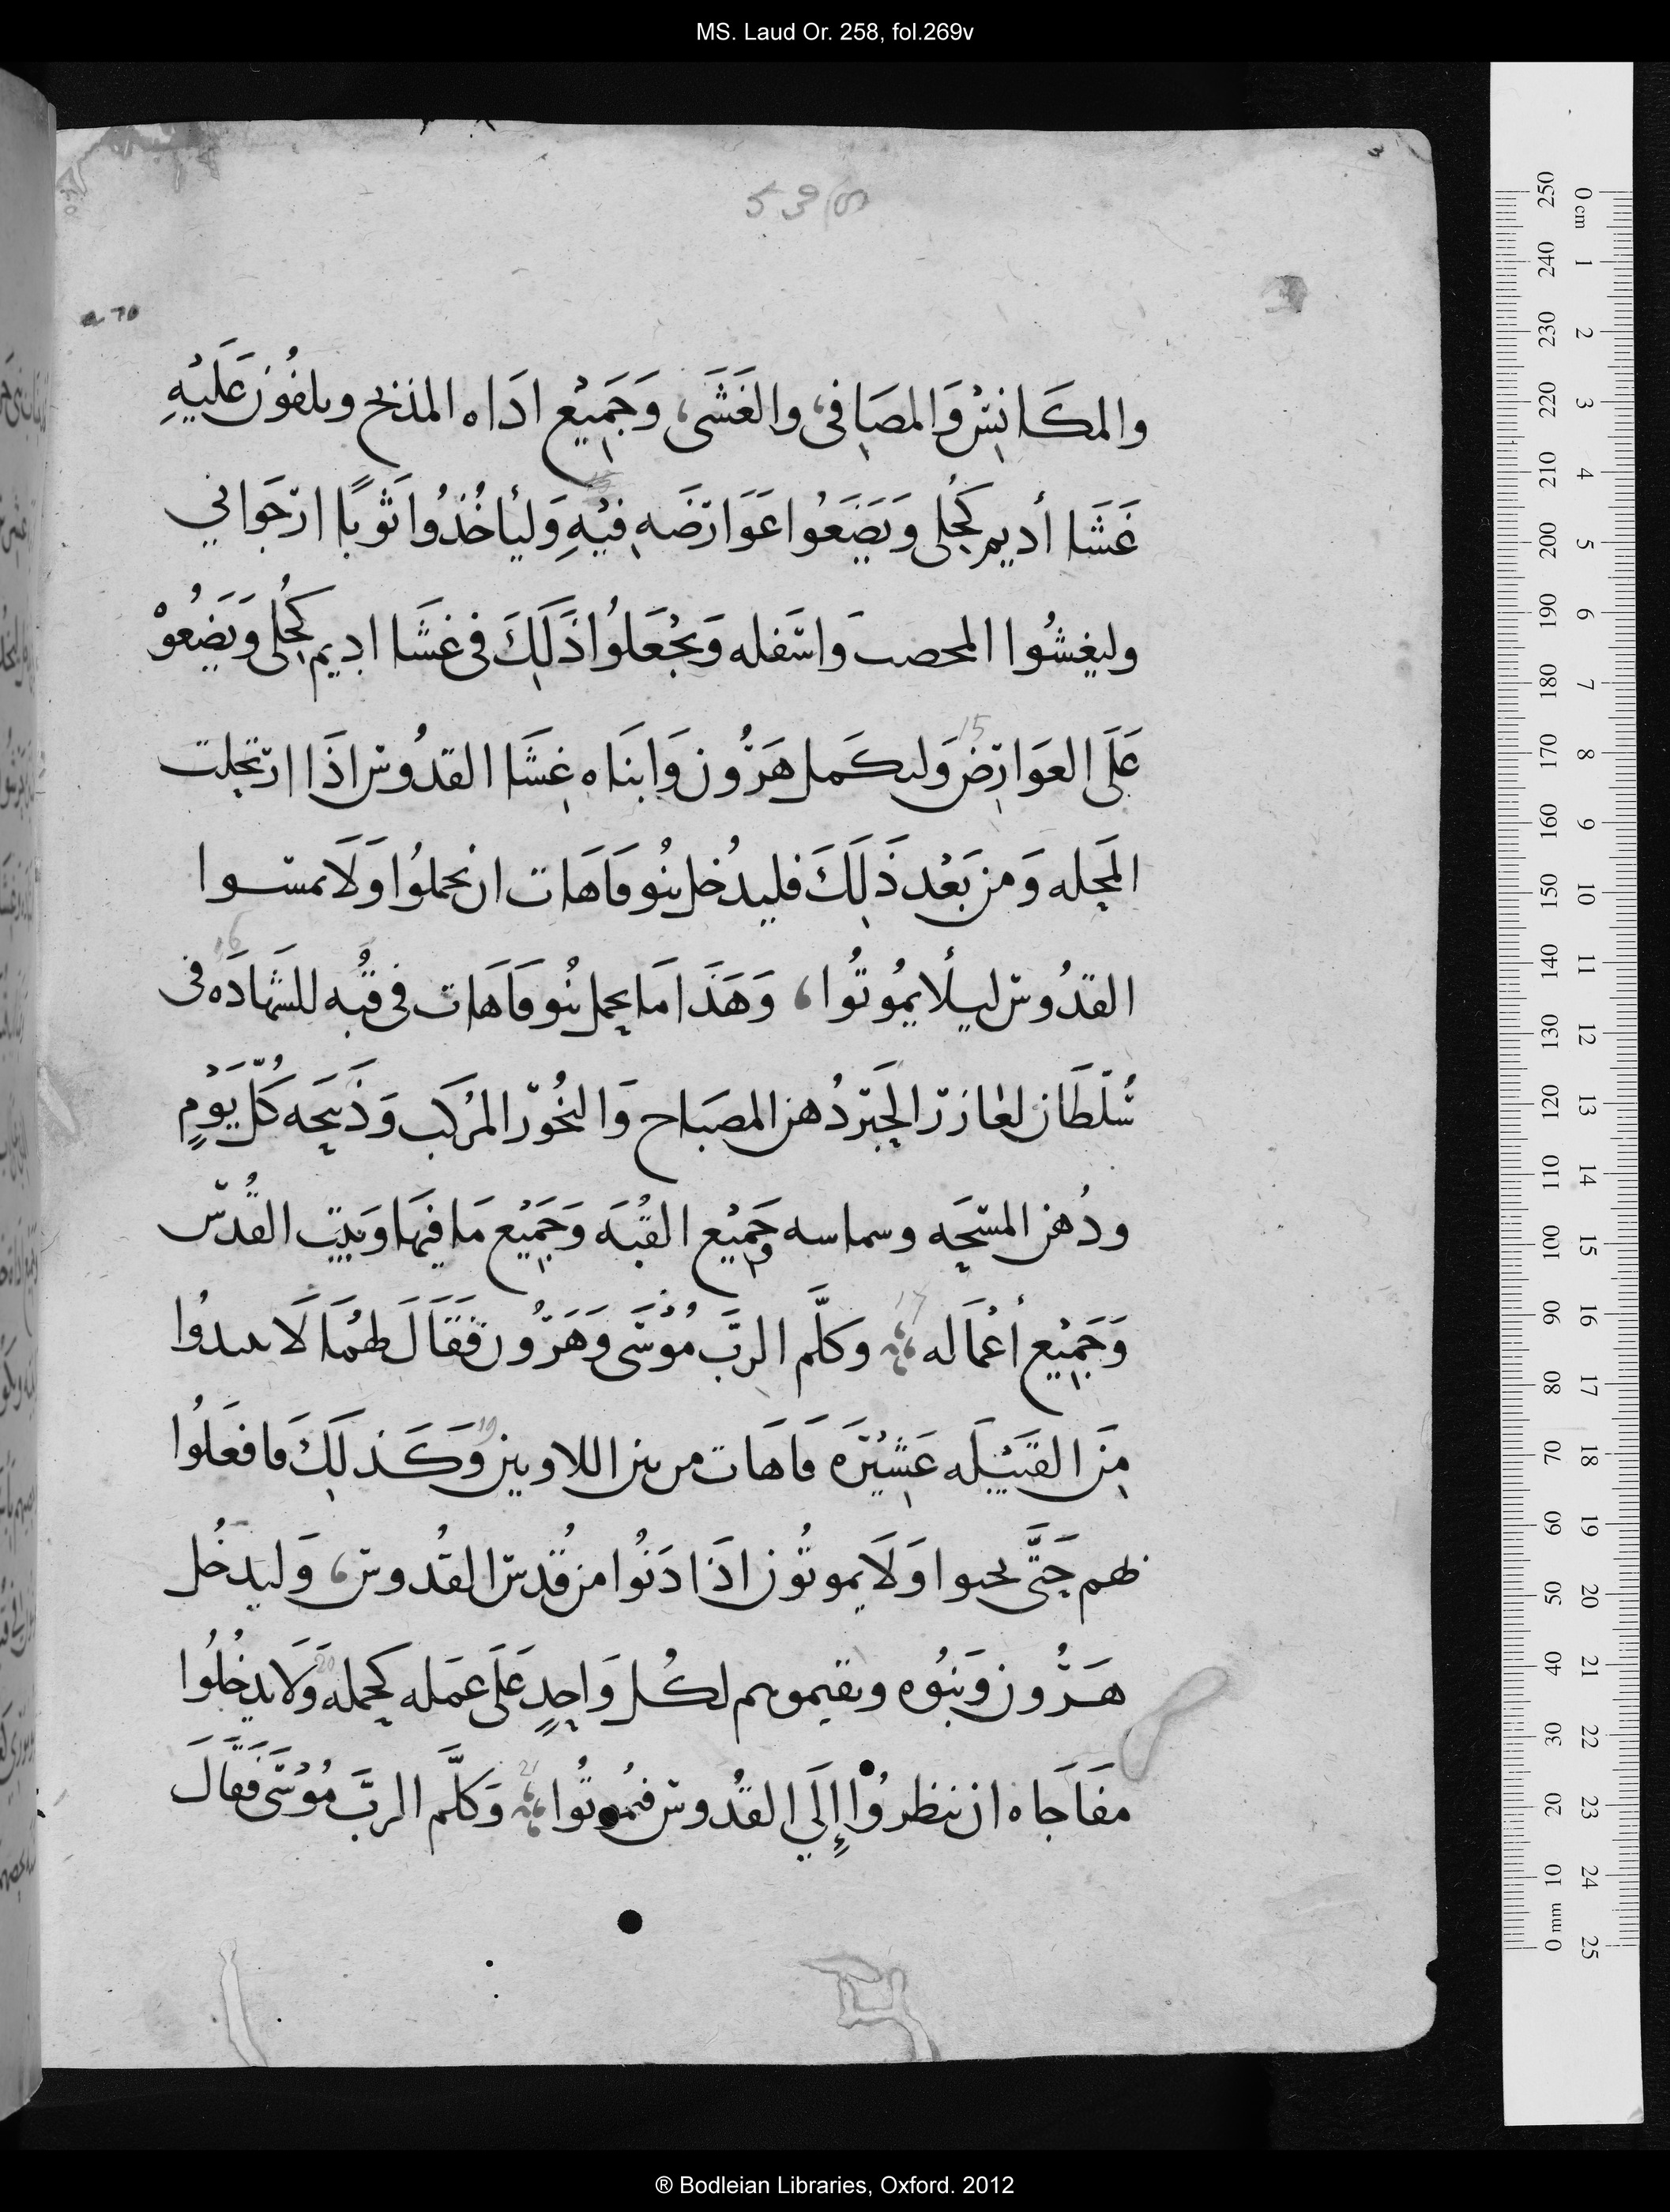 MS. Laud Or. 258, fol.269v
والمكانِسْ وَالمصَافِى، والغَشَى، وَجَمِيْع ادَاه المذبح ويلفُون عَلَيْهِ
غَشَا أديم كُحلى وَيَضَعُوا عَوَارضَه فِيْهِ وَليأخُذُوا ثَوبًا ارجَوانى
وليغشُوا المحصب وَاسفله وَيَجْعَلُوا ذَلِكَ فى غشَا اديم كُحلى وَيَضَعُوْ
عَلَى العَوَارِض وَليكَمل هَرُون وَابنَاه غِشَا القدُوس اذَا ارتحلت
المَحِله وَمن بَعْد ذَلِكَ فليدُخل بنُو قَاهَات ان يحملُوا وَلَا يمسوا
القدُوس ليلأ يمُوتُوا، وَهَذَا مَا يحمل بنُو قَاهَات فى قبُه للشَهادَه فى
سُلطَان لعازر الحَبر دُهن المصبَاح وَالبخُور المرَكب وَذَبِيحَه كُلّ يَوْمٍ
ودُهن المسحَه وسماسه وجَمِيْع القبُه وَجَمِيْع مَا فيهَا وَبيت القُدس
وَجَمِيْع أعْمَاله وكلَّم الربّ مُوْسَى وَهَرُون فَقَالَ لهُمَا لَا تبيدُوا
مِنَ القَبيْلَه عَشِيْرَه قَاهَات من بين اللاويين وَكَذلِكَ فافعَلُوا
لهم حَتَّى يحيوا وَلَا يموتُون اذَا دَنُوا من قُدس القدُوس، وَليدخُل
هَرُون وَبنُوه ويقيموهم لكُل وَاحِدٍ عَلَى عمَله كحمله وَلَا يدخُلُوا
مفَاجَاه ان ينظرُوا إِلَي القدُوس فيمُوتُوا وَكلَّم الربَّ مُوْسَى فَقَالَ
15
16
17
19
20
21
® Bodleian Libraries, Oxford. 2012